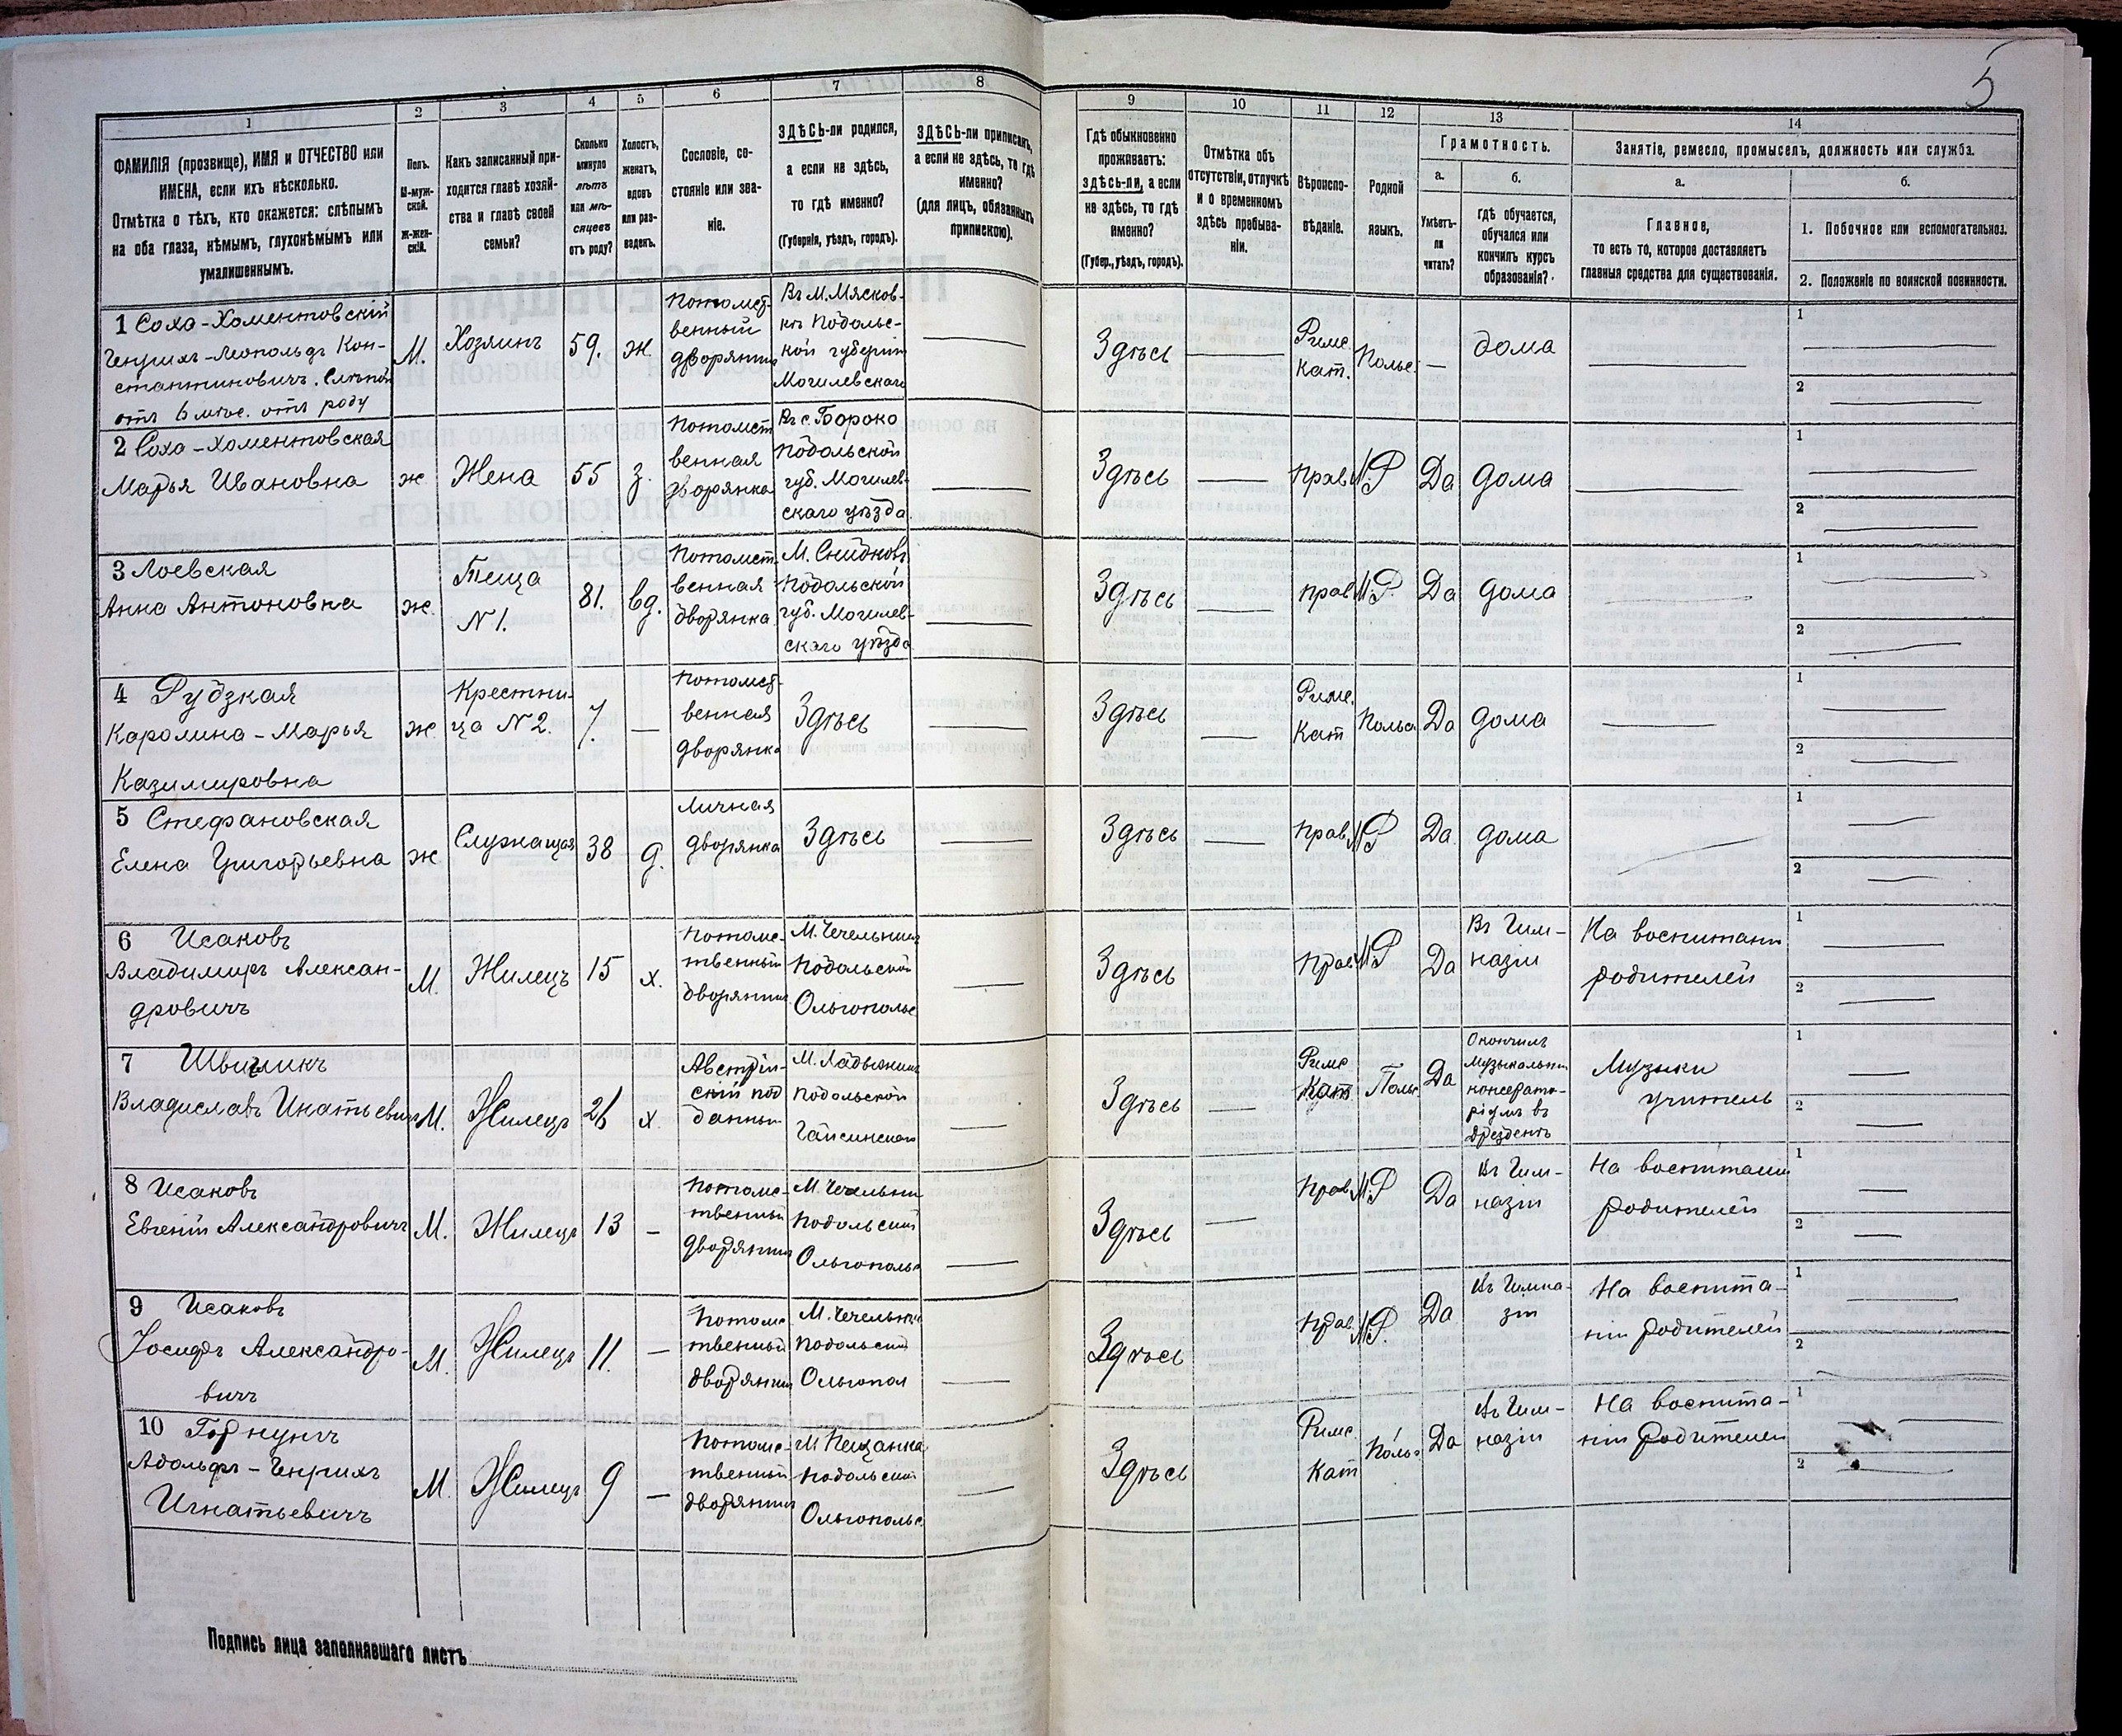 5
1
2
3
4
5
6
7
8
9
10
11
12
13
14
ФАМИЛІЯ (прозвище), ИМЯ и ОТЧЕСТВО или
ИМЕНА, если ихъ нѣсколько.
Отмѣтка о тѣхъ, кто окажется: слѣпымъ
на оба глаза, нѣмымъ, глухонѣмымъ или
умалишеннымъ.
Полъ.
М-муж-
ской.
Ж-жен-
скій.
Какъ записанный при-
ходится главѣ хозяй-
ства и главѣ своей
семьи?
Сколько
минуло
лѣтъ
или мѣ-
сяцевъ
отъ роду?
Холостъ,
женатъ,
вдовъ
или раз-
веденъ.
Сословіе, со-
стояніе или зва-
ніе.
ЗДѢСЬ-ли родился,
а если не здѣсь,
то гдѣ именно?
(Губернія, уѣздъ, городъ).
ЗДѢСЬ-ли приписанъ,
а если не здѣсь, то гдѣ
именно?
(для лицъ, обязанныхъ
припискою).
Гдѣ обыкновенно
проживаетъ:
здѣсь-ли, а если
не здѣсь, то гдѣ
именно?
(Губер., уѣздъ, городъ).
Отмѣтка объ
отсутствіи, отлучкѣ
и о временномъ
здѣсь пребыва-
ніи.
Вѣроиспо-
вѣданіе.
Родной
языкъ.
Грамотность.
а.
б.
Умѣетъ-
ли
читать?
гдѣ обучается,
обучался или
кончилъ курсъ
образованія?
Занятіе, ремесло, промыселъ, должность или служба.
а.
б.
Главное,
то есть то, которое доставляетъ
главныя средства для существованія.
1. Побочное или вспомогательное.
2. Положеніе по воинской повинности.
1 Сохо-Хоментовскій
Генрихъ-Леопольдъ Кон-
стантиновичъ. Слѣпой
отъ 6 мѣс. отъ роду
М.
Хозяинъ
59.
ж.
Потомст-
венный
дворянинъ
Въ М. Мясков-
кѣ Подольс-
кой губерніи
Могилевскаго
Здѣсь
Римс.
Кат.
Польс.
дома
1
2
2 Сохо-Хоментовская
Марья Ивановна
ж
Жена
55
з.
Потомст
венная
дворянка
Въ с.
Подольской
губ. Могилев-
скаго уѣзда
Здѣсь
Прав.
Р
Да
дома
1
2
3 Лоевская
Анна Антоновна
ж.
Теща
N 1.
81.
вд.
Потомст
венная
дворянка
М. Снитковъ
Подольской
губ. Могилев-
скаго уѣзда
Здѣсь
прав.
Р
Да
дома
1
2
4 Рудзкая
Каролина-Марья
Казимировна
ж.
Крестни-
ца N 2.
7.
Потомст-
венная
дворянка
Здѣсь
Здѣсь
Римс.
Кат
Польс
Да
дома
1
2
5 Стефановская
Елена Григорьевна
ж
Служащая
38
д.
Личная
дворянка
Здѣсь
Здѣсь
Прав.
Р
Да
дома
1
2
6 Исаковъ
Владимиръ Алексан-
дровичъ
М.
Жилецъ
15
х.
Потомс-
твенный
дворянинъ
М. Чечельникъ
Подольской
Ольгопольс
Здѣсь
Прав.
Р
Да
Въ Гим-
назіи
На воспитаніи
родителей
1
2
7
Владиславъ Игнатьевичъ
М.
Жилецъ
26
х.
Австрій-
скій под
данный
М. Ладыжинъ
Подольской
Гайсинскаго
Здѣсь
Римс
Кат
Польс
Да
Окончилъ
Музыкальную
консервато-
рію въ
Дрезденѣ
Музыки
учитель
1
2
8 Исаковъ
Евгеній Александровичъ
М.
Жилецъ
13
Потомс-
твенный
дворянинъ
М. Чечельни
Подольской
Ольгопольс
Здѣсь
Прав
Р
Да
Въ Гим-
назіи
На воспитаніи
родителей
1
2
9 Исаковъ
Іосифъ Александро-
вичъ
М.
Жилецъ
11.
Потомс
твенный
дворянинъ
М. Чечельник
Подольской
Ольгопол
Здѣсь
Прав.
Р.
Да
Въ Гимна-
зіи
На воспита-
ніи родителей
1
2
10 Горнунгъ
Адольфъ-Генрихъ
Игнатьевичъ
М.
Жилецъ
9
Потомс-
твенный
дворянинъ
М Песчанка
Подольской
Ольгопольс
Здѣсь
Римс.
Кат
Польс
Да
Въ Гим-
назіи
На воспита-
ніи родителей
1
2
Подпись лица заполнявшаго листъ